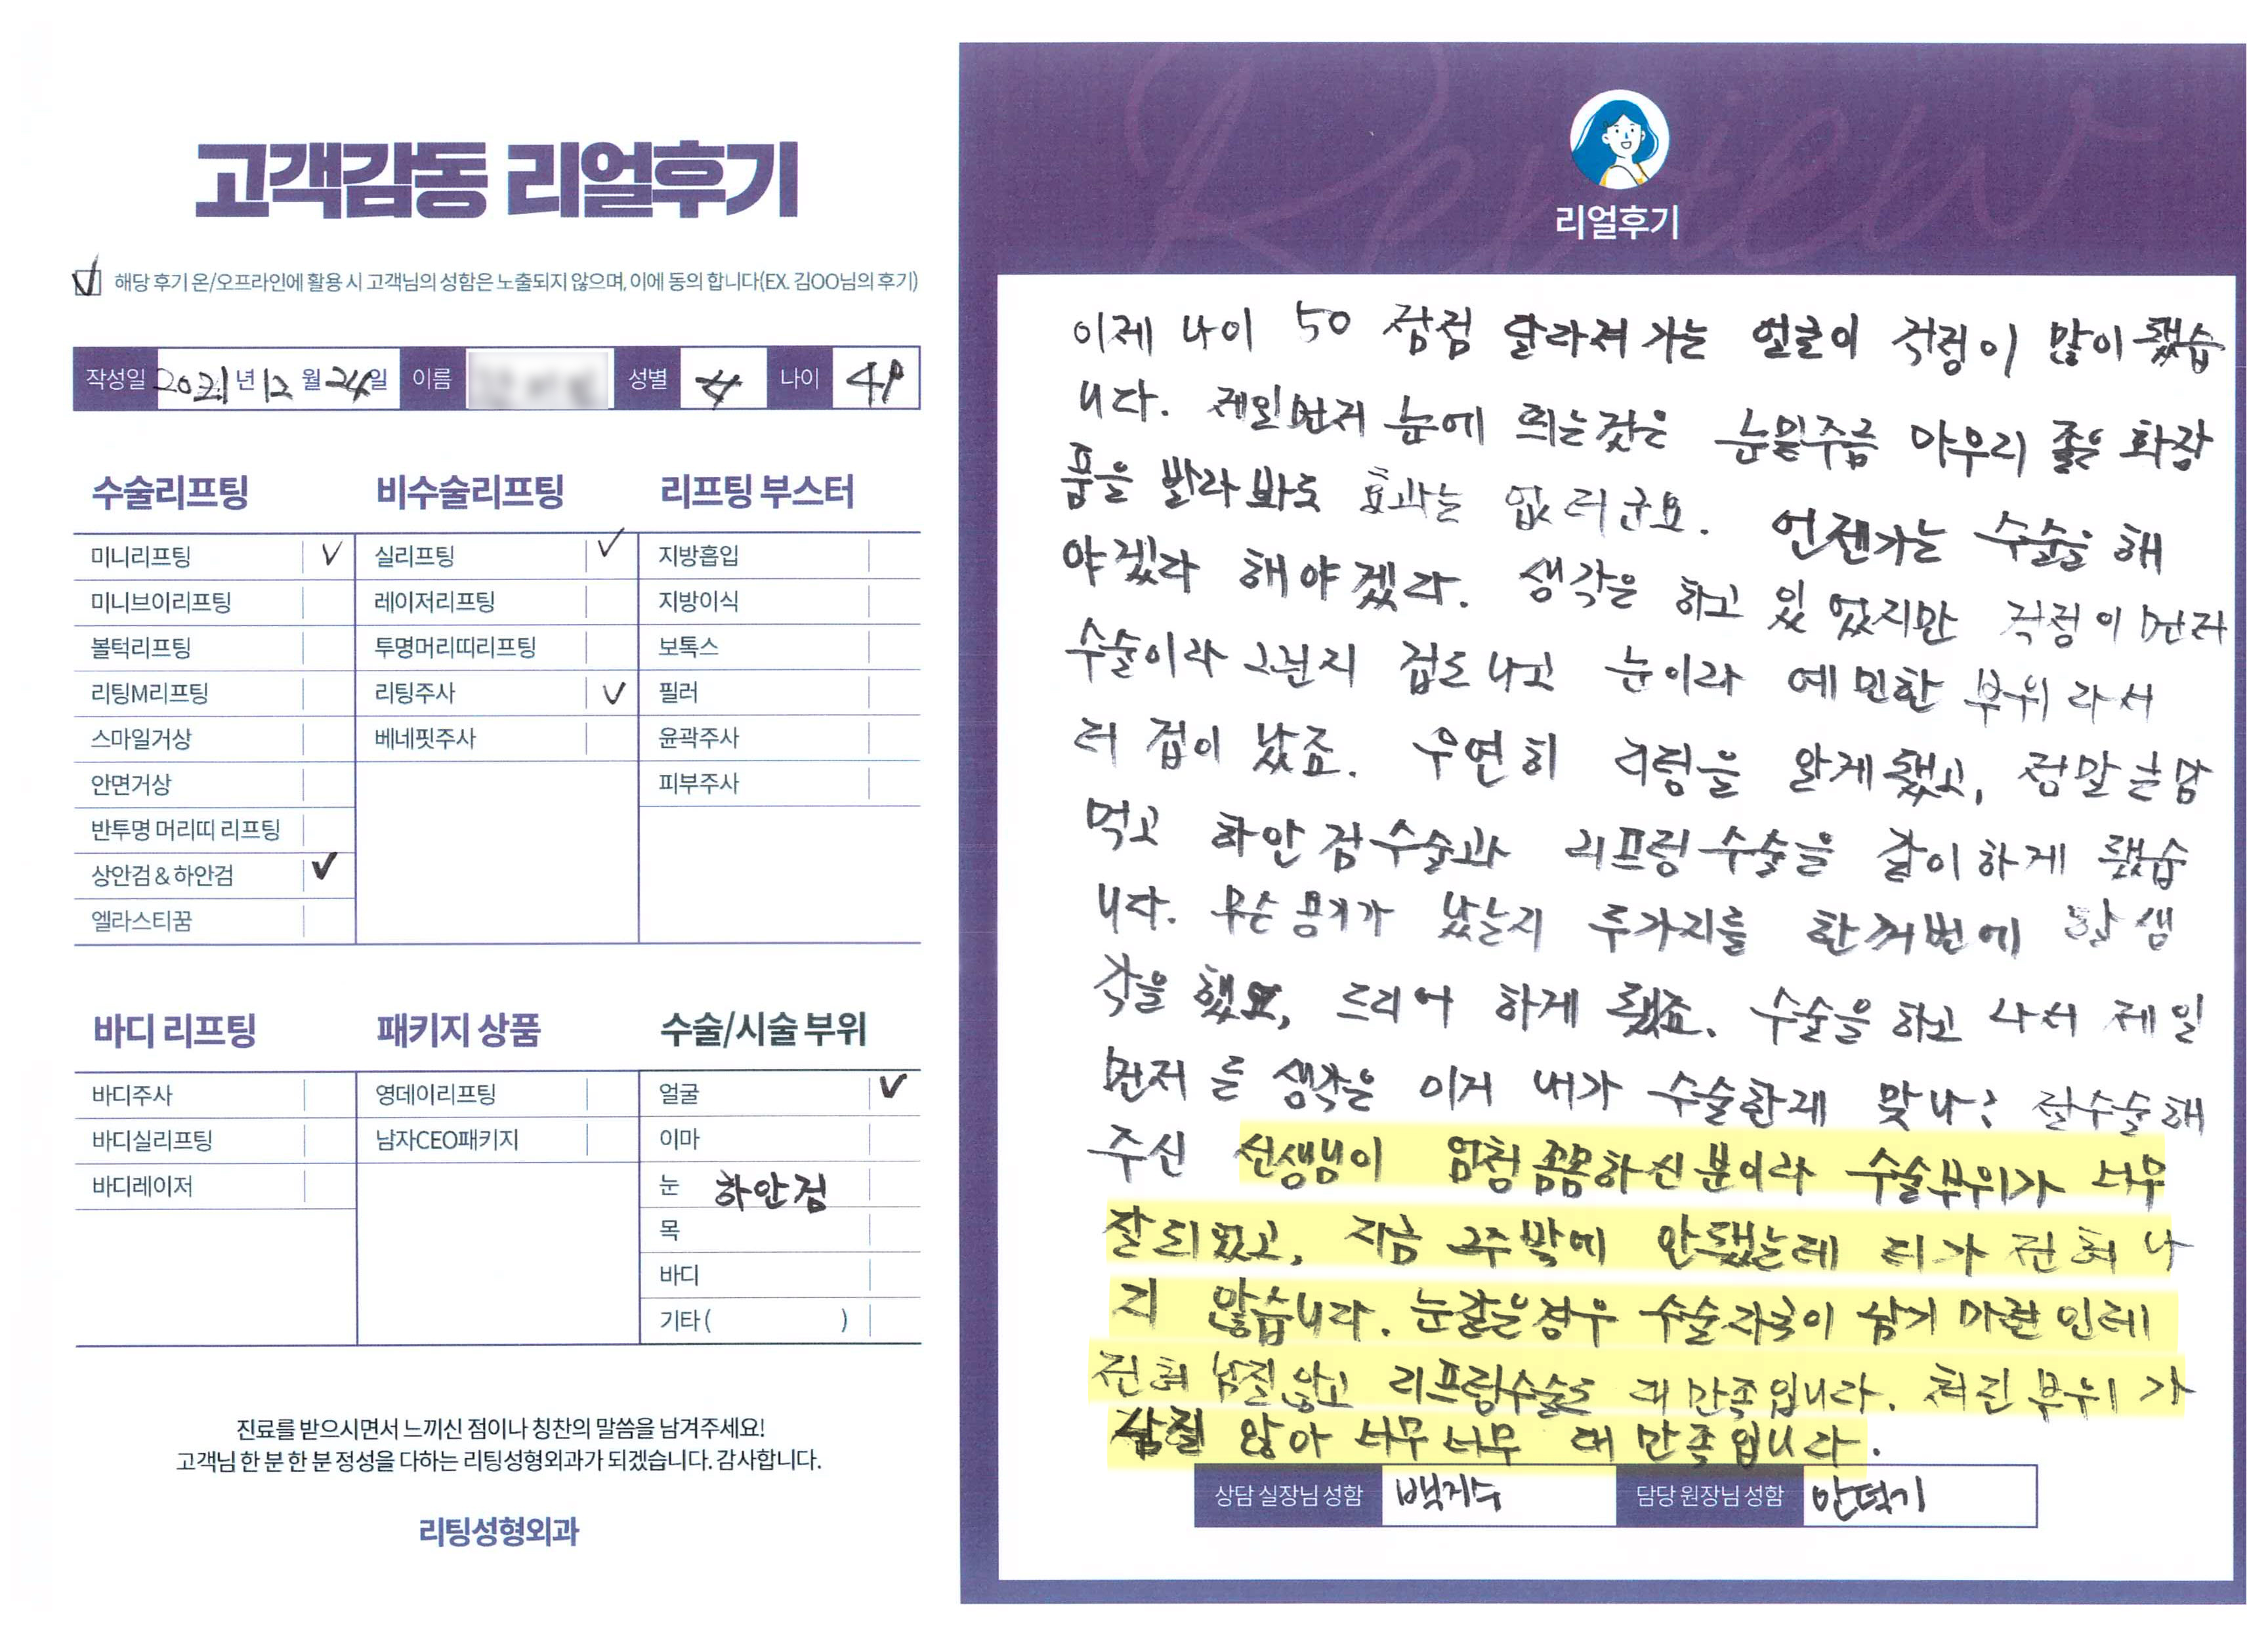 고객감동 리얼후기
해당 후기 온/오프라인에 활용 시 고객님의 성함은 노출되지 않으며, 이에 동의 합니다(EX. 김OO님의 후기)
작성일 2021년 12월 24일 이름 성별 여 나이 49
수술리프팅
미니리프팅 V
미니브이리프팅
볼턱리프팅
리팅M리프팅
스마일거상
안면거상
반투명 머리띠 리프팅
상안검 & 하안검 V
엘라스티꿈
비수술리프팅
실리프팅 V
레이저리프팅
투명머리띠리프팅
리팅주사 V
베네핏주사
리프팅 부스터
지방흡입
지방이식
보톡스
필러
윤곽주사
피부주사
바디 리프팅
바디주사
바디실리프팅
바디레이저
패키지 상품
영데이리프팅
남자CEO패키지
수술/시술 부위
얼굴 V
이마
눈 하안검
목
바디
기타 ( )
진료를 받으시면서 느끼신 점이나 칭찬의 말씀을 남겨주세요!
고객님 한 분 한 분 정성을 다하는 리팅성형외과가 되겠습니다. 감사합니다.
리팅성형외과
Review
리얼후기
이제 나이 50 점점 달라져 가는 얼굴이 걱정이 많이 됐습
니다. 제일먼저 눈에 띄는것은 눈밑주름 아무리 좋은 화장
품을 발라봐도 효과는 없더군요. 언젠가는 수술을 해
야겠다 해야겠다. 생각을 하고 있었지만 걱정이 먼저
수술이라 그런지 겁도 나고 눈이라 예민한 부위라서
더 겁이 났죠. 우연히 리팅을 알게됐고, 정말 큰맘
먹고 하안검수술과 리프팅수술을 같이하게 됐습
니다. 무슨 용기가 났는지 두가지를 한꺼번에 할 생
각을 했고, 드디어 하게 됐죠. 수술을 하고 나서 제일
먼저 든 생각은 이거 내가 수술한게 맞나? 절 수술해
주신 선생님이 엄청 꼼꼼하신분이라 수술부위가 너무
잘되었고, 지금 2주밖에 안됐는데 티가 전혀 나
지 않습니다. 눈같은경우 수술자국이 남기 마련인데
전혀 남질않고 리프팅수술도 대만족입니다. 처진부위가
남질 않아 너무너무 대만족입니다.
상담 실장님 성함 백지수 담당 원장님 성함 안덕기